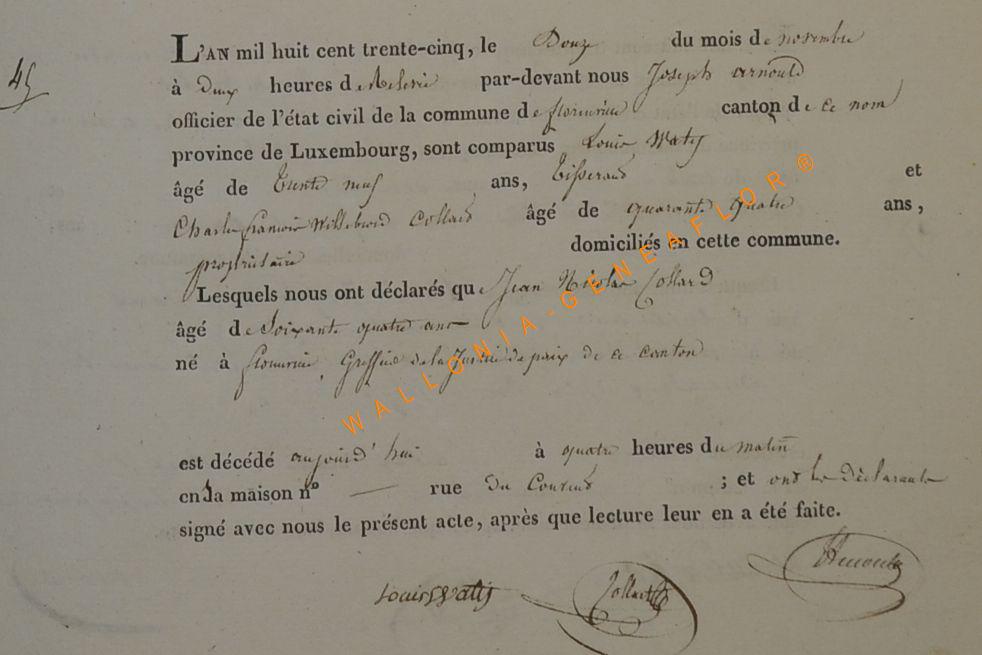 45
L'AN mil huit cent trente-cinq, le Douze du mois de novembre
à Deux heures de Relevée par-devant nous Joseph arnould
officier de l'état civil de la commune de florenville canton de ce nom
province de Luxembourg, sont comparus Louis Watÿ
âgé de trente neuf ans, tisserand et
Charles françois Willebrord Collard âgé de quarante quatre ans,
propriétaire domiciliés en cette commune.
Lesquels nous ont déclarés que Jean Nicolas Collard
âgé de Soixante quatre ans
né à florenville, Greffier de la Justice de paix de ce canton
est décédé aujourd'hui à quatre heures du matin
en la maison n° — rue Du Couvent ; et ont les Déclarants
signé avec nous le présent acte, après que lecture leur en a été faite.
Louis Watÿ Collard Arnould
WALLONIA-GENEAFLOR®